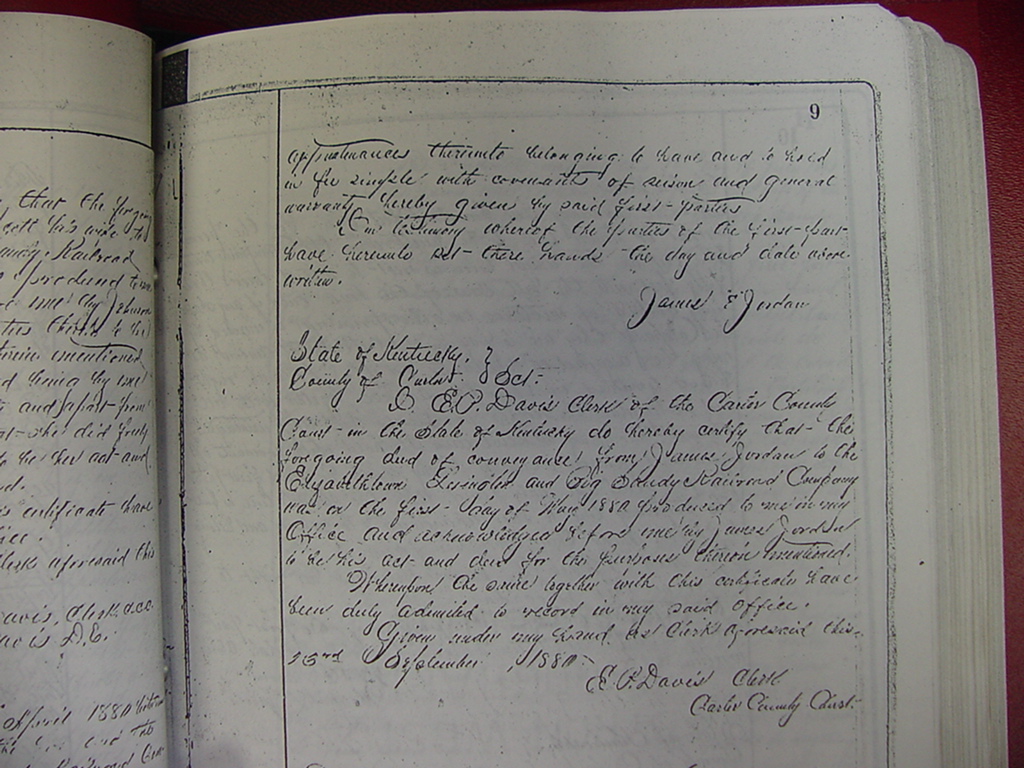 that the forgoing
his wife
Railroad
produced to me
me by Johnson
to his
therein mentioned
being by me
and apart from
she did freely
to be her act and
certificate have
office.
Clerk aforesaid this
Davis, Clerk
Davis D.C.
April 1880
9
appurtenances thereunto belonging to have and to hold
in fee simple with covenants of seison and general
warranty hereby given by said first parties
In testimony whereof the parties of the first part
have hereunto set there hands the day and date above
written.
James Jordan
State of Kentucky. }
County of Carter. } Sct:
I E.P. Davis Clerk of the Carter County
Court in the State of Kentucky do hereby certify that the
foregoing deed of conveyance from James Jordan to the
Elizabethtown Lexington and Big Sandy Railroad Company
was on the first day of 1880 produced to me in my
Office and acknowledged before me by James Jordan
to be his act and deed for the purposes therein mentioned.
Whereupon the same together with this certificate have
been duly admitted to record in my said office.
Given under my hand as Clerk aforesaid this
23rd September, 1880
E.P. Davis Clerk
Carter County Court.